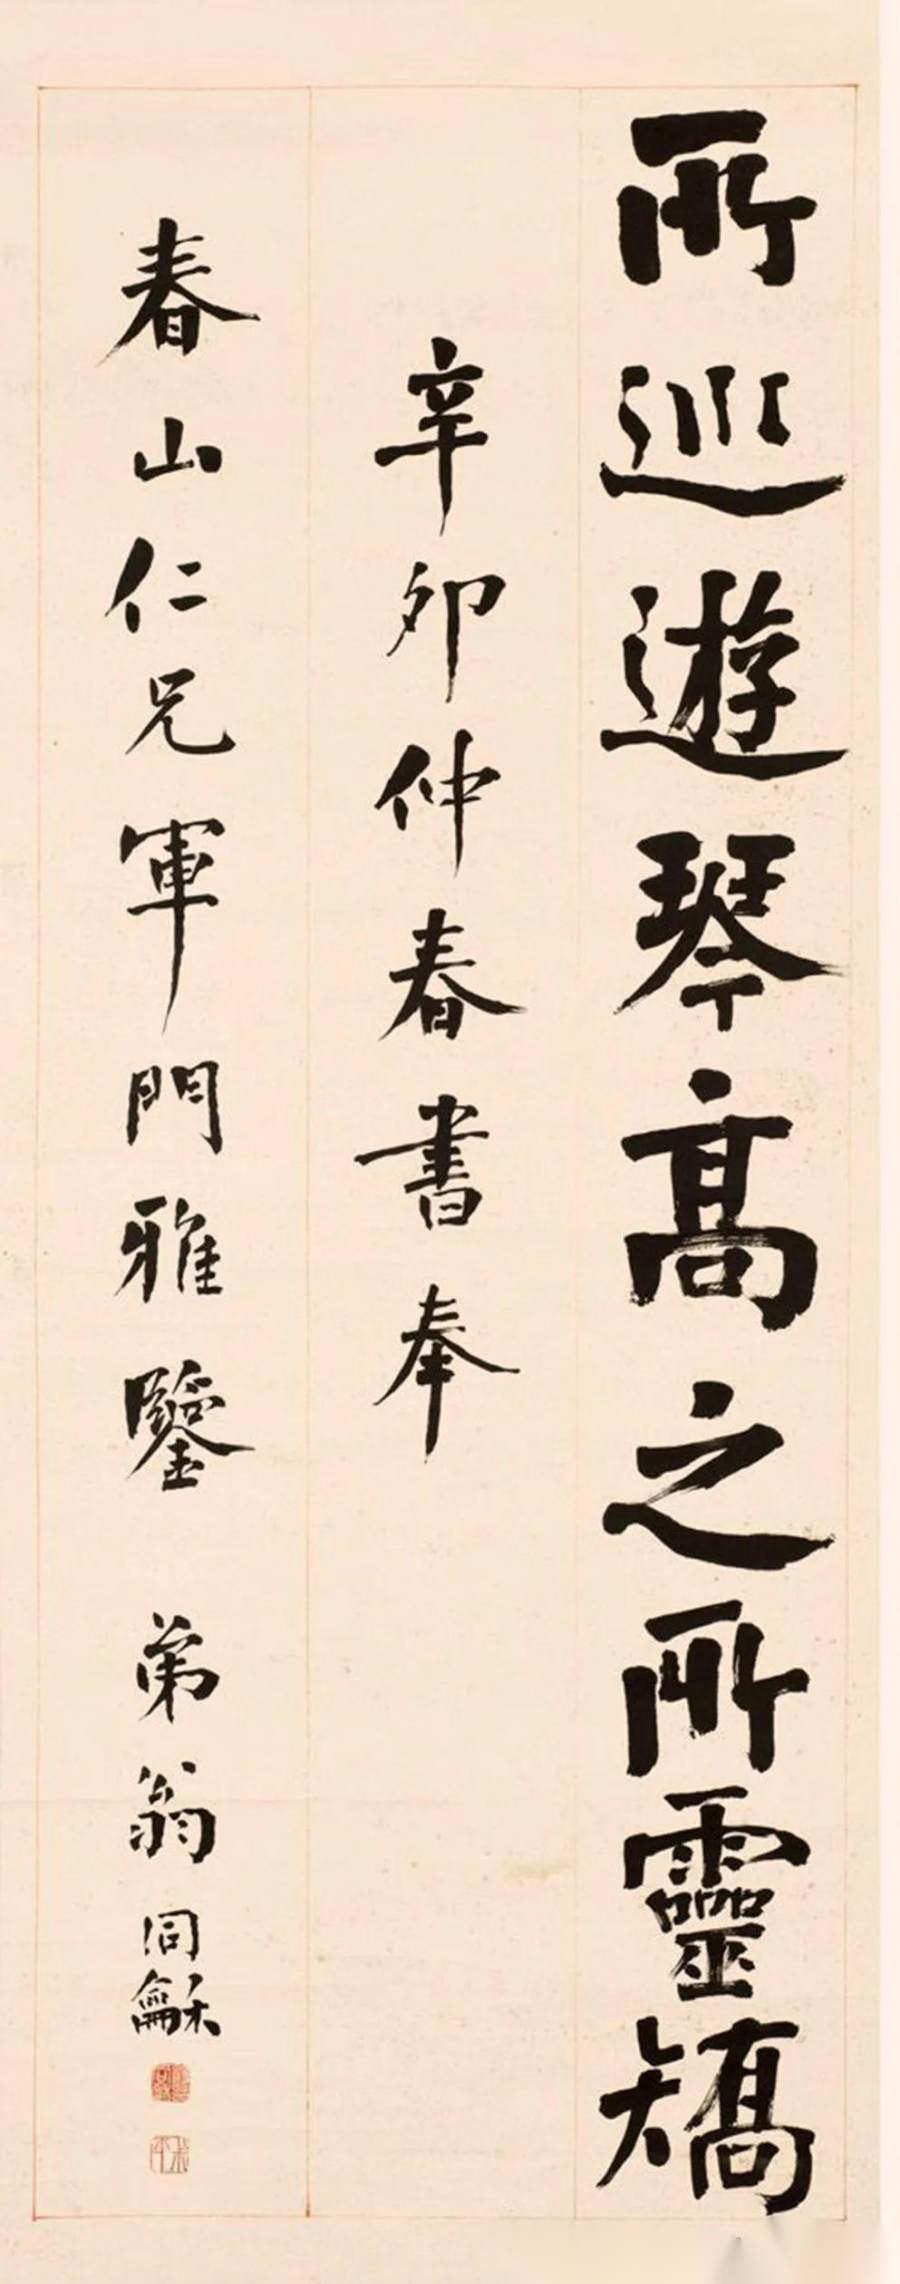 所巡遊琴高之所靈矯
辛卯仲春書奉
春山仁兄軍門雅鑒 弟翁同龢